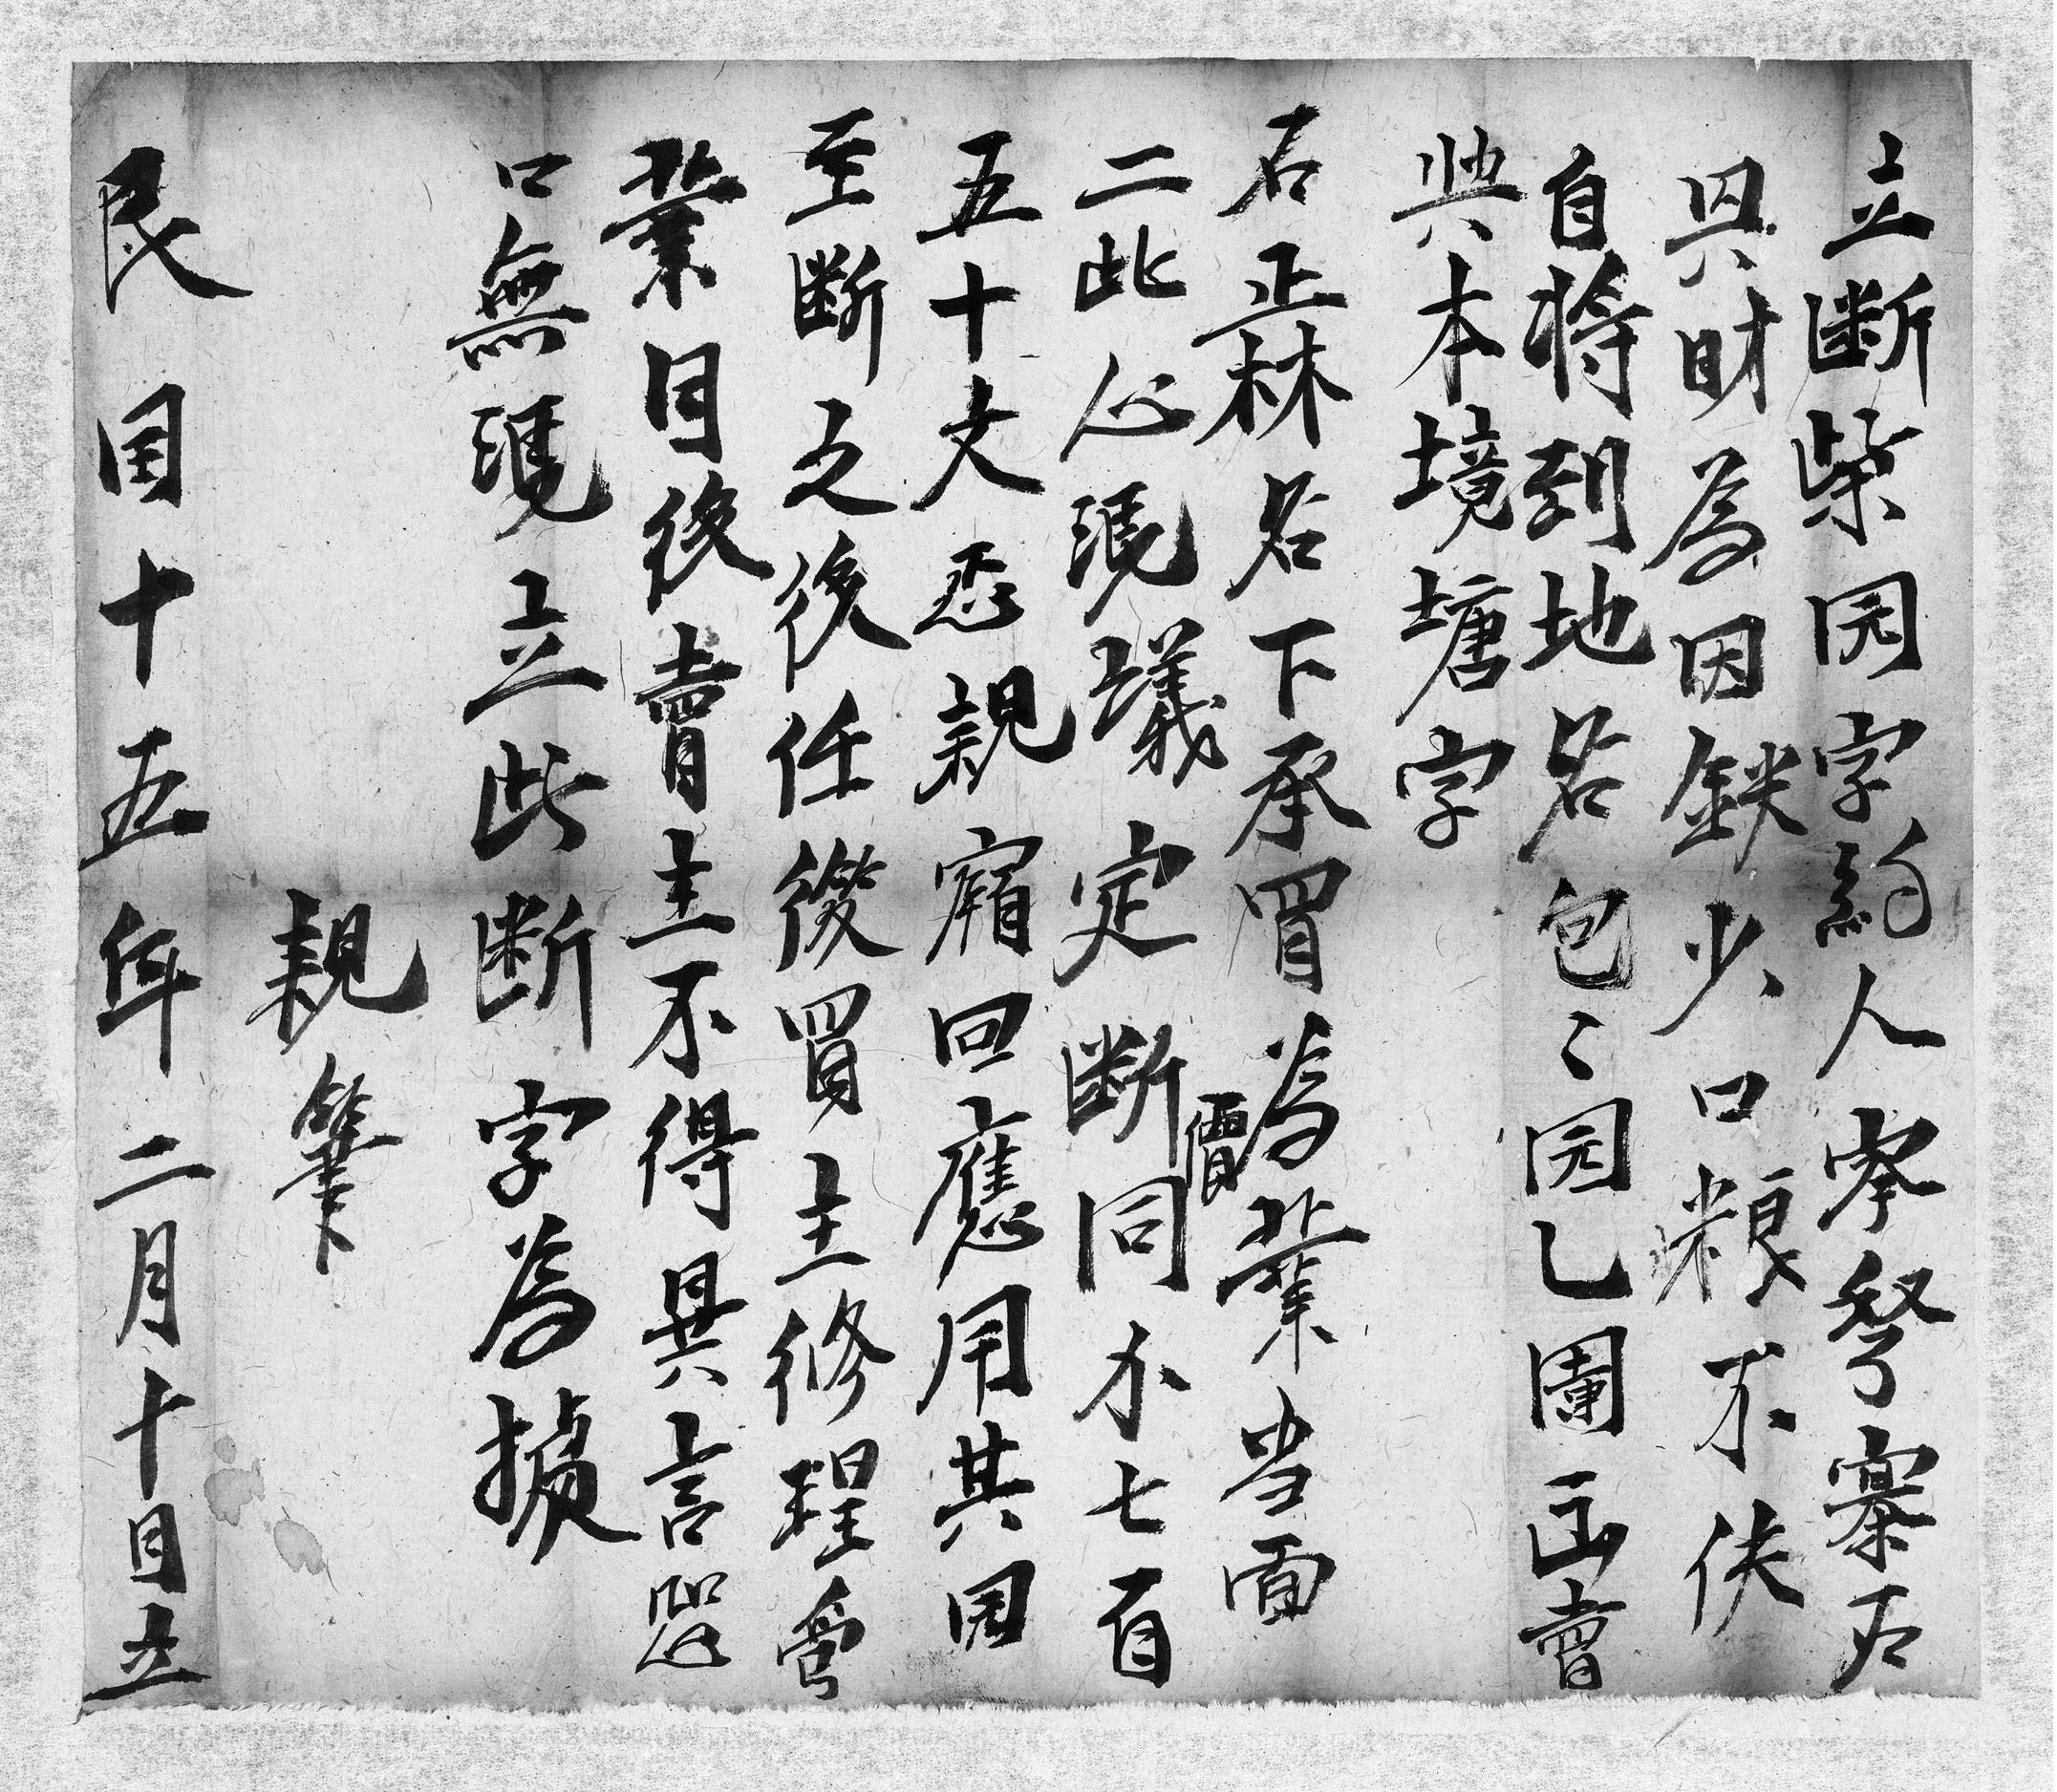 立断柴园字約人岑弩寨石
貝財為因鈌少口粮不佚
自将到地名包〻园乚園出賣
與本境塘字
石正林名下承買為業当面
二此心愿議定断價同不七百
五十文悉親實回應用其园
至断之後任從買主修理管
業日後賣主不得異言恐
口無凴立此断字為據
親筆
民国十五年二月十日立